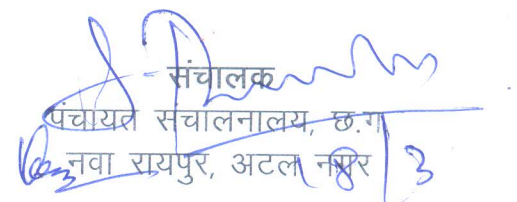 संचालक
पंचायत संचालनालय, छ.ग
नवा रायपुर, अटल नगर
8/3